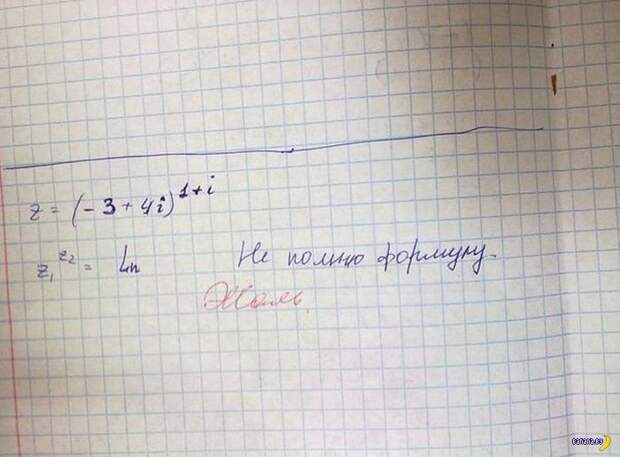 z = (-3 + 4i)^{1+i}
z₁^{z₂} = Ln Не помню формулу.
Жаль.
canana.es